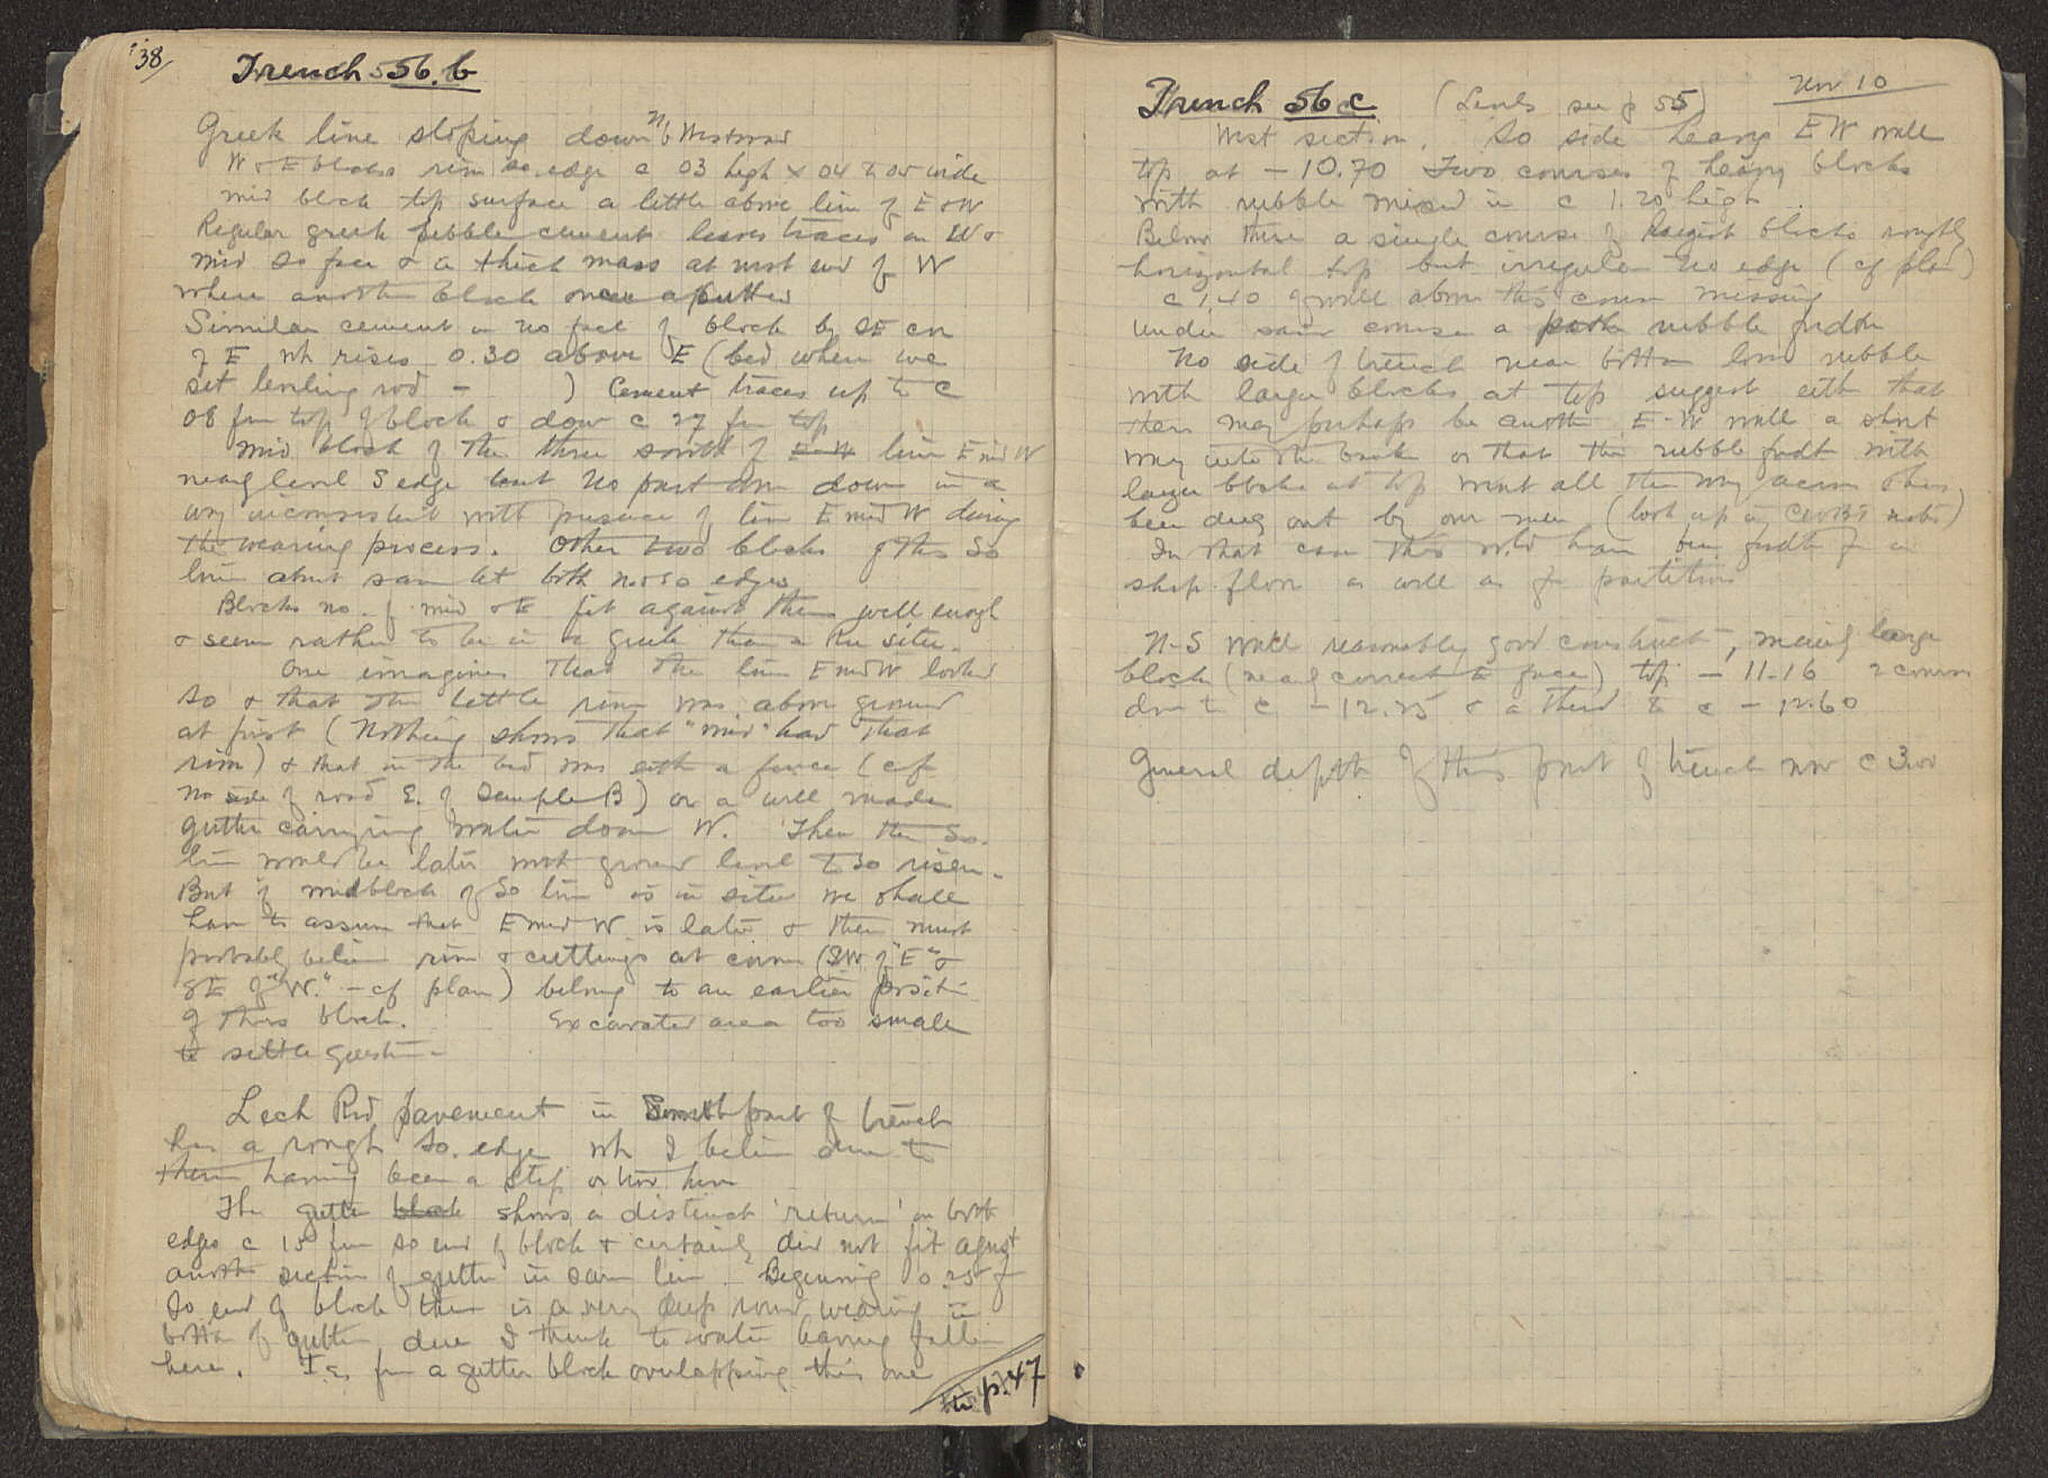 38/
Trench 56.b
Greek line sloping down to Westward
W & E blocks rim so. edge c 03 high x 04 to 05 wide
mid block top surface a little above line of E & W
Regular greek pebble cement leaves traces on W &
mid So face & a thick mass at west end of W
where another block once abutted
Similar cement on no face of block by SE cor
of E wh rises 0.30 above E (bed where we
set leveling rod – ) Cement traces up to c
08 fm top of block & down c 27 fm top
Mid block of the three south of line E mid W
nearly level S edge but No part worn down in a
way inconsistent with presence of line E mid W during
the wearing process. Other two blocks of this So
line about same ht both no & so edges
Blocks no. of mid & E fit against them well enough
& seem rather to be in a greek than a Rn situ.
One imagines that the line E mid W looked
so & that the little rim was above ground
at first (Nothing shows that "mid" had that
rim) & that in the bed was either a fence (cf
No side of road E. of Temple B) or a well made
gutter carrying water down W. Then the So.
line would be later wh ground level to so risen.
But if mid block of So line is in situ we shall
have to assume that E mid W is later & then must
probably believe rim & cuttings at corner (SW of "E" &
SE of "W." – cf plan) belong to an earlier position
of this block. Excavated area too small
to settle question –
Lech Rd pavement in South part of trench
has a rough So. edge wh I believe due to
there having been a step or two here
The gutter block shows a distinct 'return' on both
edges c 15 fm so end of block & certainly did not fit agnst
another section of gutter in same line. Beginning 0.25 fm
So end of block there is a very deep round wearing in
bottom of gutter due I think to water having fallen
here. I.e. fm a gutter block overlapping this one
to p. 47
Trench 56 c (Levels see p 55) Nov 10
West section. So side heavy E W wall
top at – 10.70 Two courses of heavy blocks
with rubble mixed in c 1.20 high.
Below these a single course of blocks roughly
horizontal top but irregular no edge (cf plan)
c 1.40 of wall above this course missing
Under same course a rubble fndtn
No side of trench near bottom low rubble
with larger blocks at top suggest either that
there may perhaps be another E-W wall a short
way into the bank or that the rubble fndtn with
larger blocks at top went all the way across & has
been dug out by our men (look up notes)
In that case this wld have been fndtn for a
shop floor as well as for partition
N-S wall reasonably good construct, mainly large
blocks (nearly correct to face) top – 11.16 2 courses
down to c – 12.25 & a third to c – 12.60
General depth of this part of trench now c 3.00